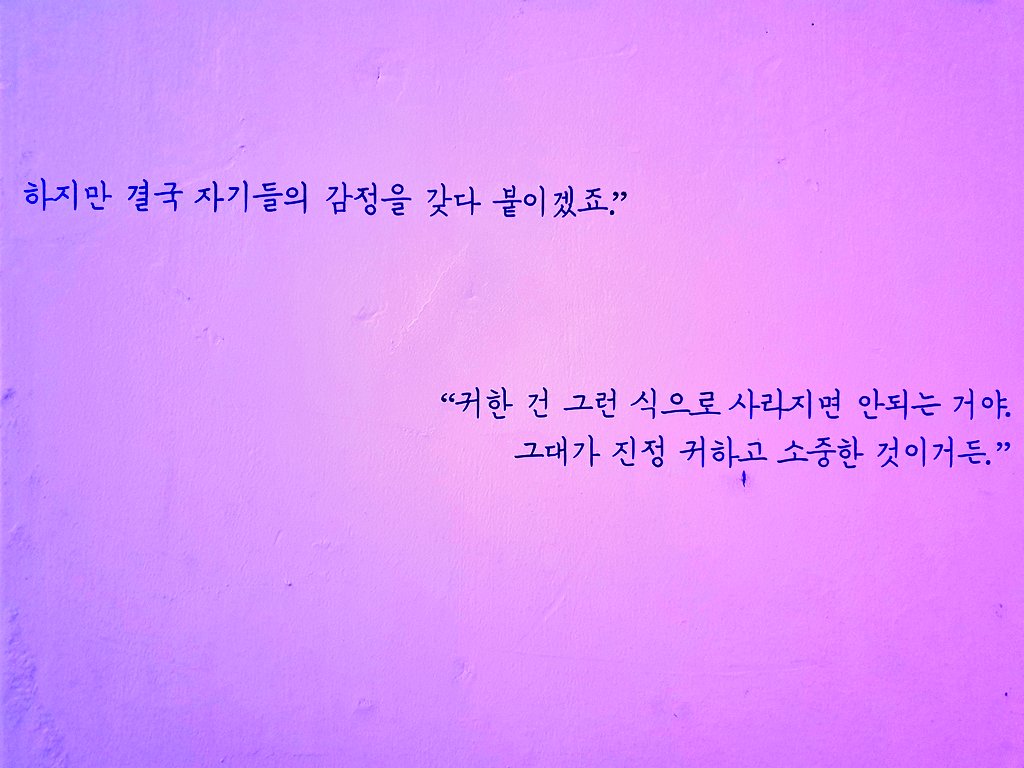 하지만 결국 자기들의 감정을 갖다 붙이겠죠.”
“귀한 건 그런 식으로 사라지면 안되는 거야.
그대가 진정 귀하고 소중한 것이거든.”